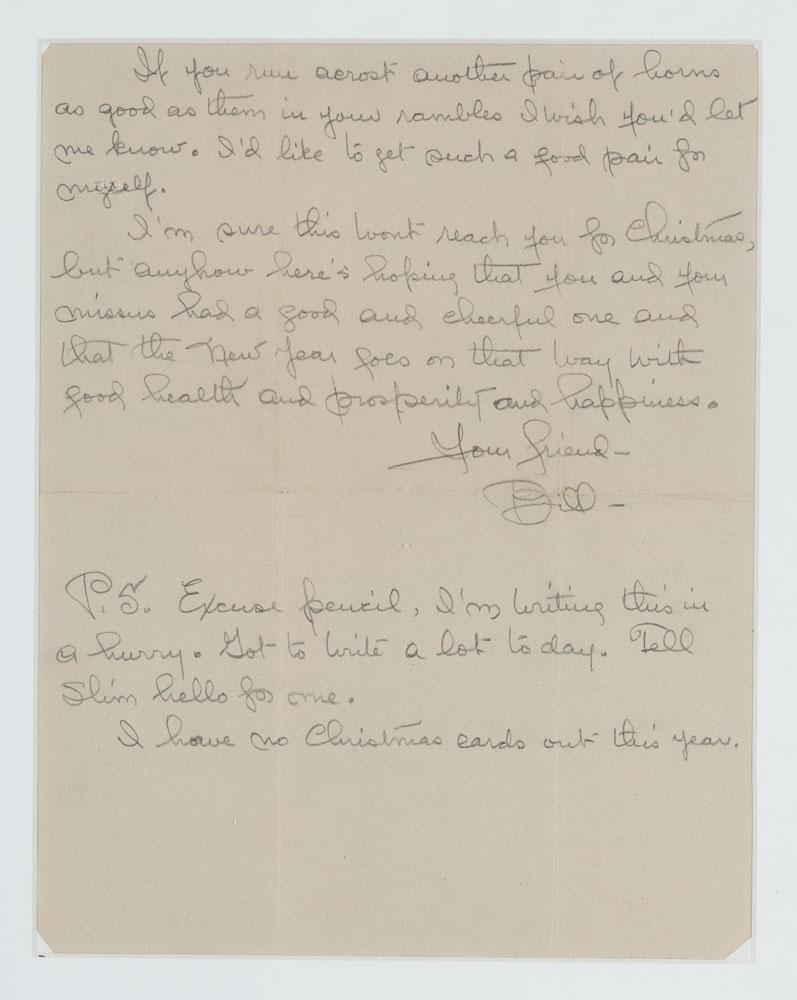 If you run acrost another pair of horns
as good as them in your rambles I wish you'd let
me know. I'd like to get such a good pair for
myself.
I'm sure this wont reach you for Christmas,
but anyhow here's hoping that you and your
missus had a good and cheerful one and
that the New Year goes on that way with
good health and prosperity and happiness.
Your friend-
Bill-
P.S. Excuse pencil, I'm writing this in
a hurry. Got to write a lot to day. Tell
Slim hello for me.
I have no Christmas cards out this year.